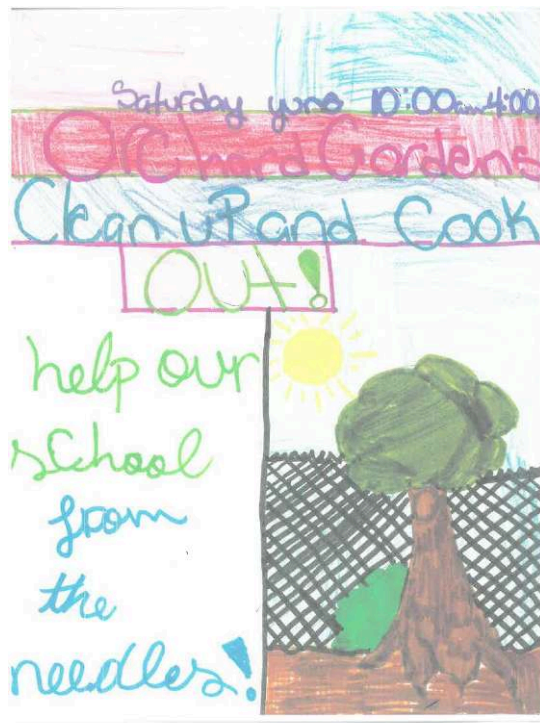 Saturday june 10:00am 4:00
Orchard Gardens
Clean uP and Cook
Out!
help our
school
from
the
needles!